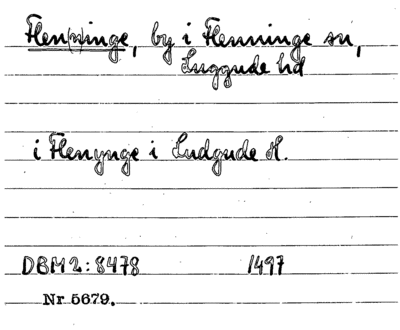 Flen(n)inge, by i Flenninge sn,
Luggude hd
i Flenynge i Ludgude H.
DBM2:8478 1497
Nr 5679.